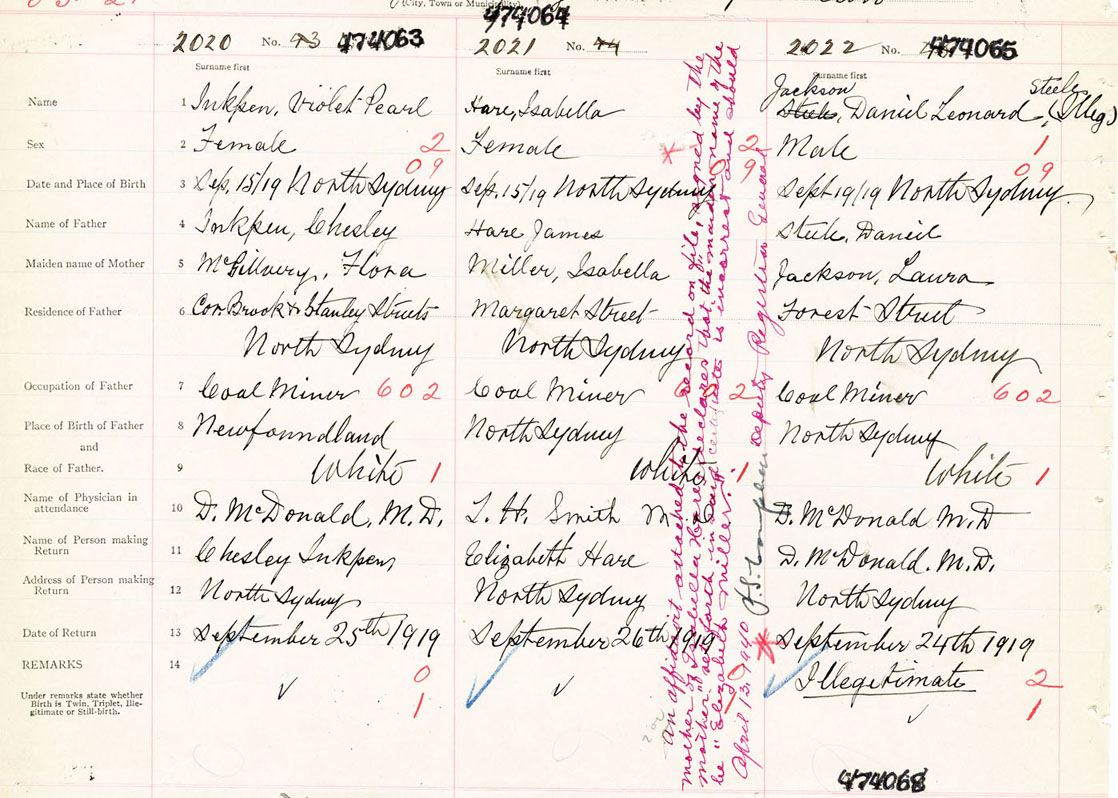 (City, Town or Municipality)
474064
2020 No. 43 474063
2021 No. 44
2022 No. 474065
Surname first
Surname first
Surname first
Name 1 Inkpen, Violet Pearl
Hare, Isabella
Jackson Steele
Steele, Daniel Leonard (Illeg.)
Sex 2 Female 2
Female 2
Male 1
09
9
09
Date and Place of Birth 3 Sep. 15/19 North Sydney
Sep. 15/19 North Sydney
Sept 19/19 North Sydney.
Name of Father 4 Inkpen, Chesley
Hare James
Steele, Daniel
Maiden name of Mother 5 McGillvery, Flora
Miller, Isabella
Jackson, Laura
Residence of Father 6 Cor. Brook & Stanley Streets
North Sydney
Margaret Street
North Sydney
Forest Street
North Sydney
Occupation of Father 7 Coal Miner 602
Coal Miner 602
Coal Miner 602
Place of Birth of Father 8 Newfoundland
North Sydney
North Sydney
and
Race of Father. 9 White 1
White 1
White 1
Name of Physician in
attendance 10 D. McDonald, M.D.
L. H. Smith M.D
D. McDonald M.D
Name of Person making
Return 11 Chesley Inkpen
Elizabeth Hare
D. McDonald. M.D.
Address of Person making
Return 12 North Sydney
North Sydney
North Sydney
Date of Return 13 September 25th 1919
September 26th 1919
September 24th 1919
REMARKS 14
0
Illegitimate 2
Under remarks state whether
Birth is Twin, Triplet, Ille-
gitimate or Still-birth.
1
1
An affidavit attached to the record on file, signed by the
mother of Isabella Hare, declares that the maiden name of the
mother as set forth in said certificate is incorrect and should
be "Elizabeth Miller."
April 13, 1940 Deputy Registrar General
474068